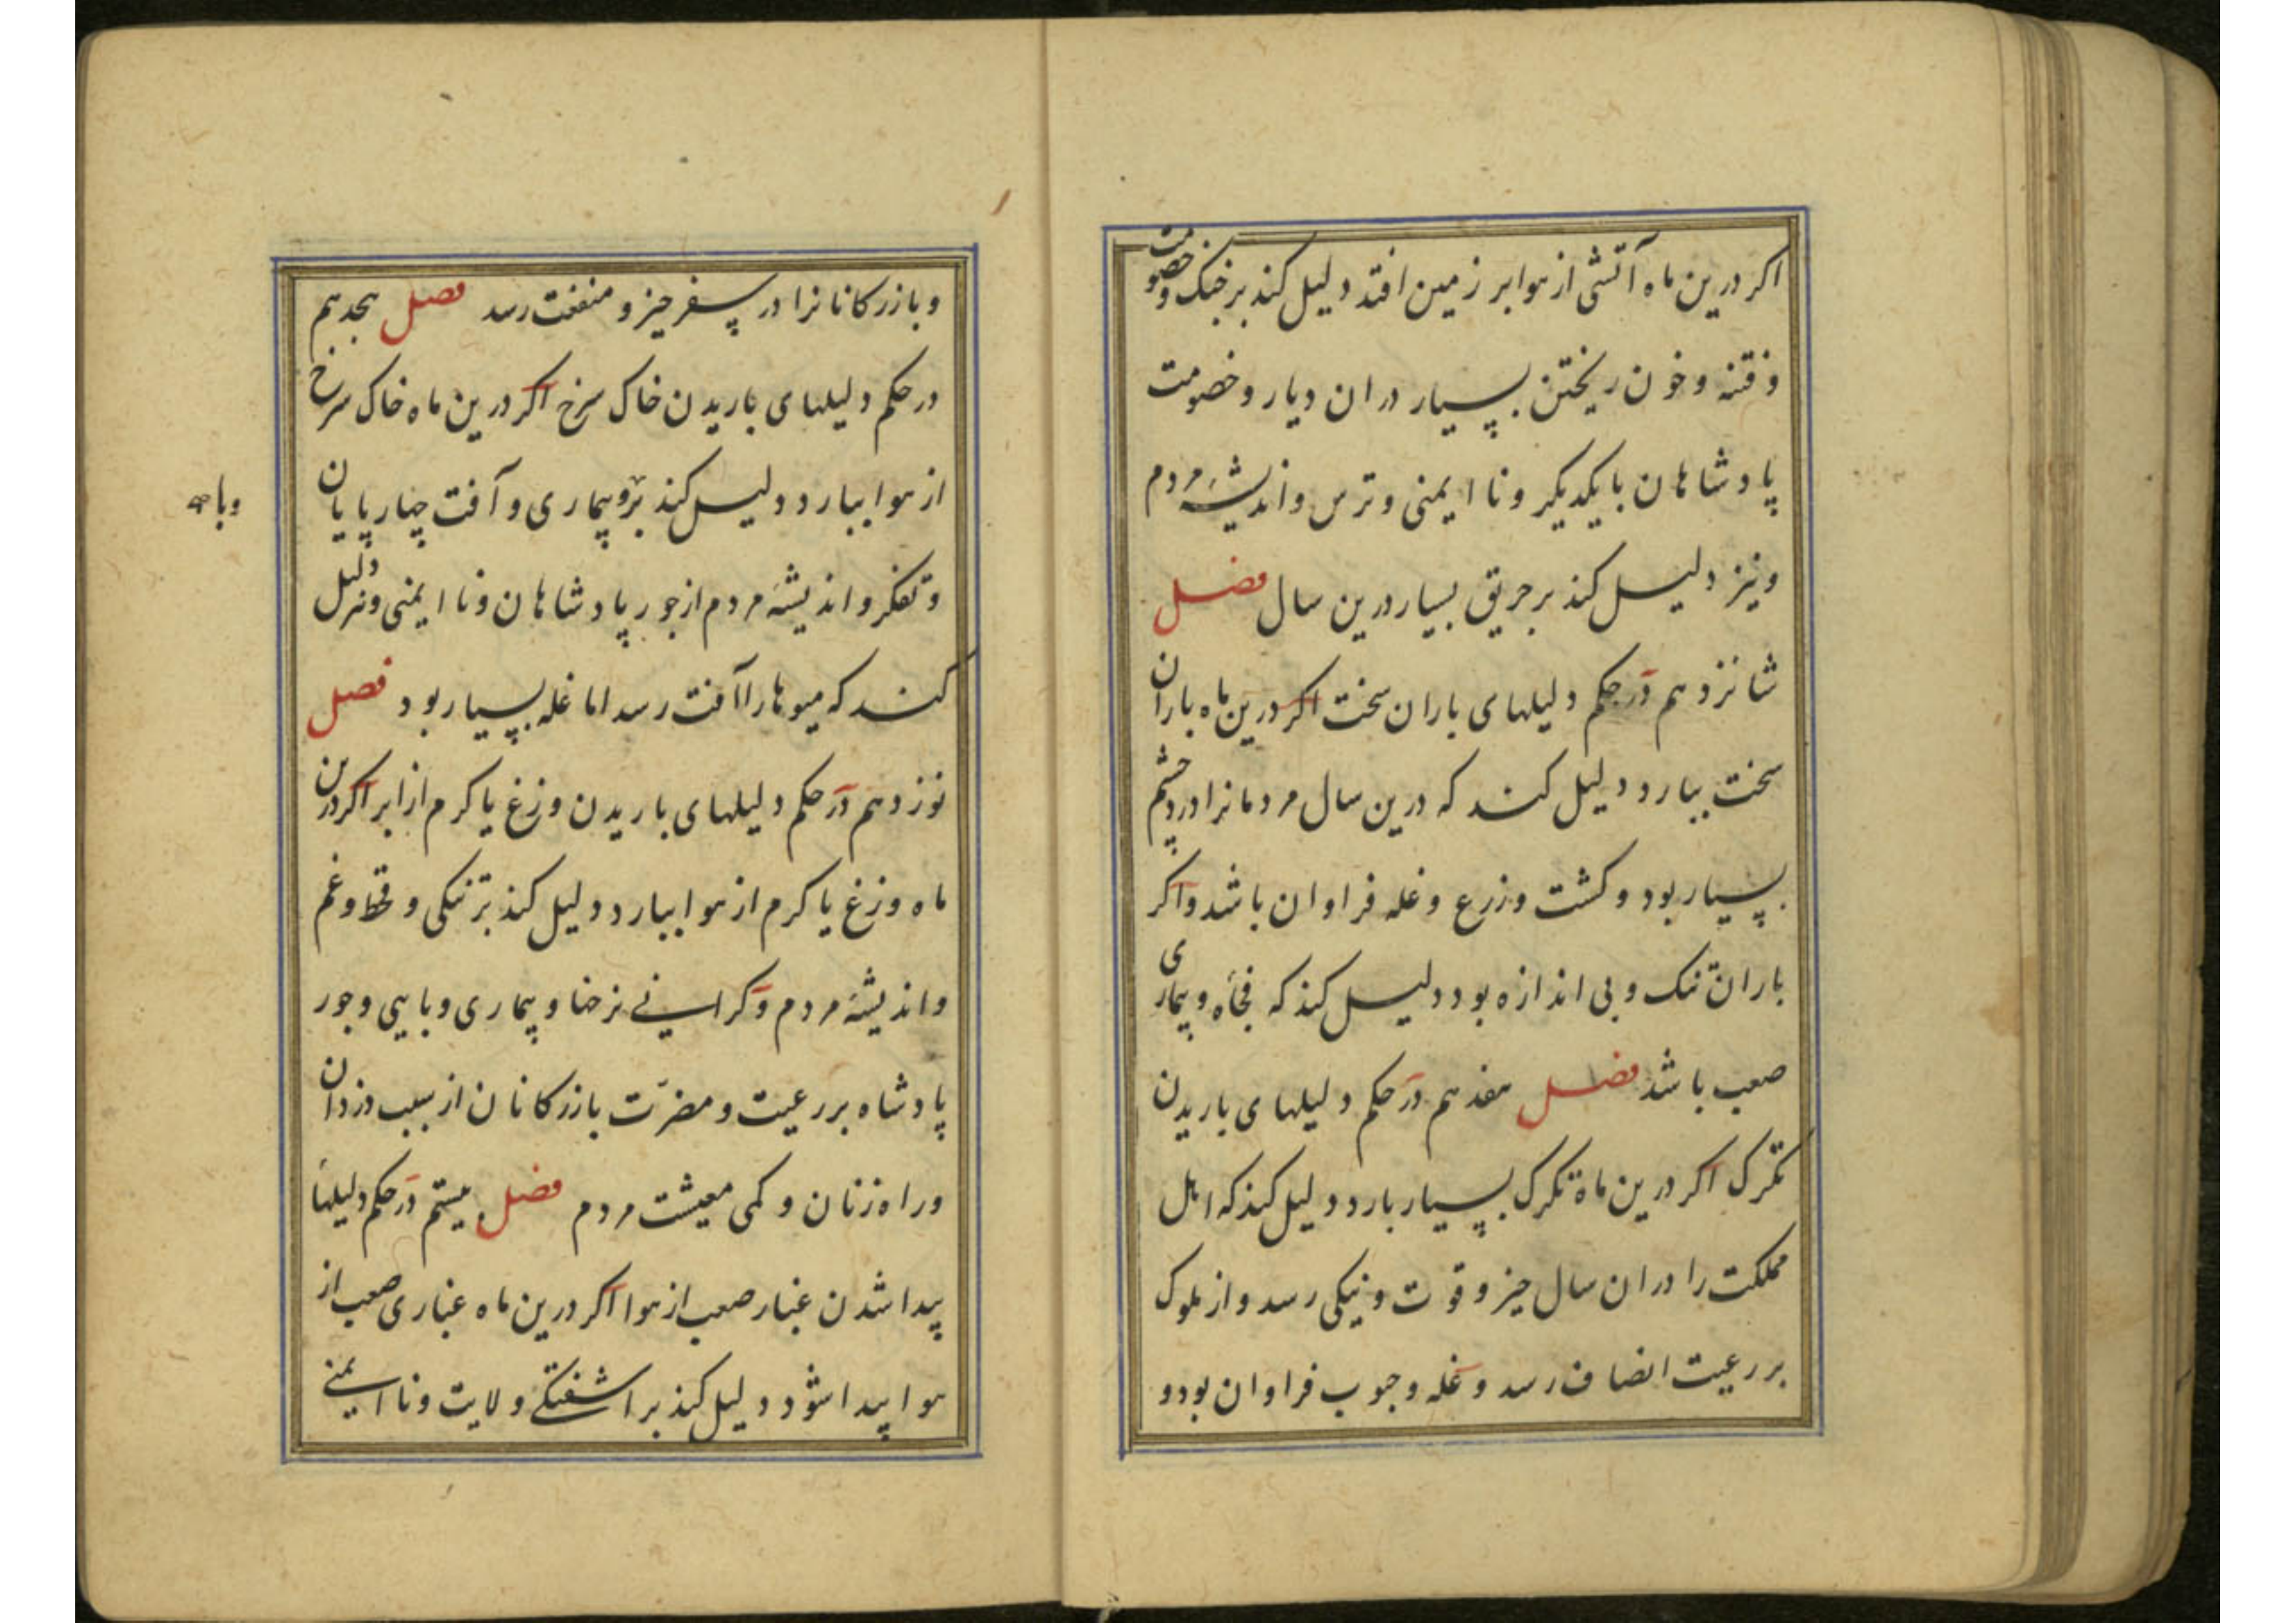 اکر درین ماه آتشی از هوا بر زمین افتد دلیل کند بر جنک و خصومت
و فتنه و خون ریختن بسیار در ان دیار و خصومت
پادشاهان با یکدیکر و نا ایمنی و ترس و اندیشهٔ مردم
و نیز دلیل کند بر حریق بسیار درین سال فصل
شانزدهم در حکم دلیلهای باران سخت اکر درین ماه باران
سخت ببارد دلیل کند که درین سال مردمانرا درد چشم
بسیار بود و کشت و زرع و غله فراوان باشد و اکر
باران تنک و بی اندازه بود دلیل کند که فجأه و بیماری
صعب باشد فصل هفدهم در حکم دلیلهای باریدن
تکرک اکر درین ماه تکرک بسیار بارد دلیل کند که اهل
مملکت را در ان سال خیر و قوت و نیکی رسد و از ملوک
بر رعیت انصاف رسد و غله و حبوب فراوان بود و
و بازرکانانرا در سفر خیر و منفعت رسد فصل هجدهم
در حکم دلیلهای باریدن خاک سرخ اکر درین ماه خاک سرخ
از هوا ببارد دلیل کند بر و بیماری و آفت چهارپایان
وبا صح
و تفکر و اندیشهٔ مردم از جور پادشاهان و نا ایمنی و نیز دلیل
کند که میوهارا آفت رسد اما غله بسیار بود فصل
نوزدهم در حکم دلیلهای باریدن وزغ یا کرم از ابر اکر درین
ماه وزغ یا کرم از هوا ببارد دلیل کند بر تنکی و قحط و غم
و اندیشهٔ مردم و کرانی نرخها و بیماری و بایی و جور
پادشاه بر رعیت و مضرّت بازرکانان از سبب دزدان
و راه زنان و کمی معیشت مردم فصل بیستم در حکم دلیلهاء
پیدا شدن غبار صعب از هوا اکر درین ماه غباری صعب از
هوا پیدا شود دلیل کند بر اشفتکی ولایت و نا ایمنی